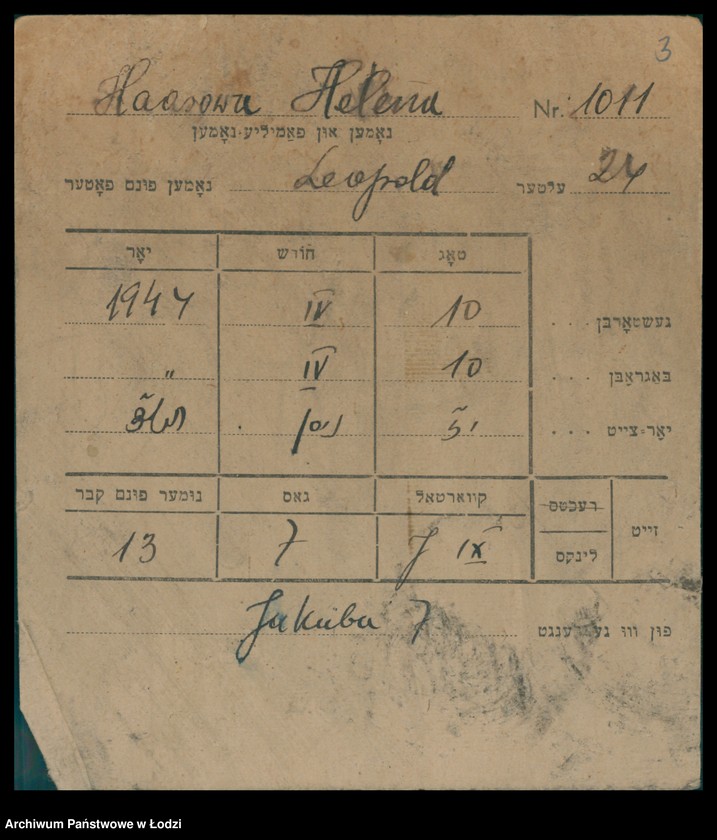 3
Haasowa Helena Nr. 1011
נאָמען און פאַמיליע-נאָמען
נאָמען פונם פאָטער Leopold עלטער 24
טאָג חודש יאָר
געשטאָרבן . . . 10 IV 1944
באַגראָבן . . . 10 IV "
יאָר-צייט . . . י"ז ניסן תש"ד
זייט רעכטס לינקס קוואַרטאל גאס נומער פונם קבר
J IX 7 13
פון וווּ געברענגט Jakuba 7
Archiwum Państwowe w Łodzi